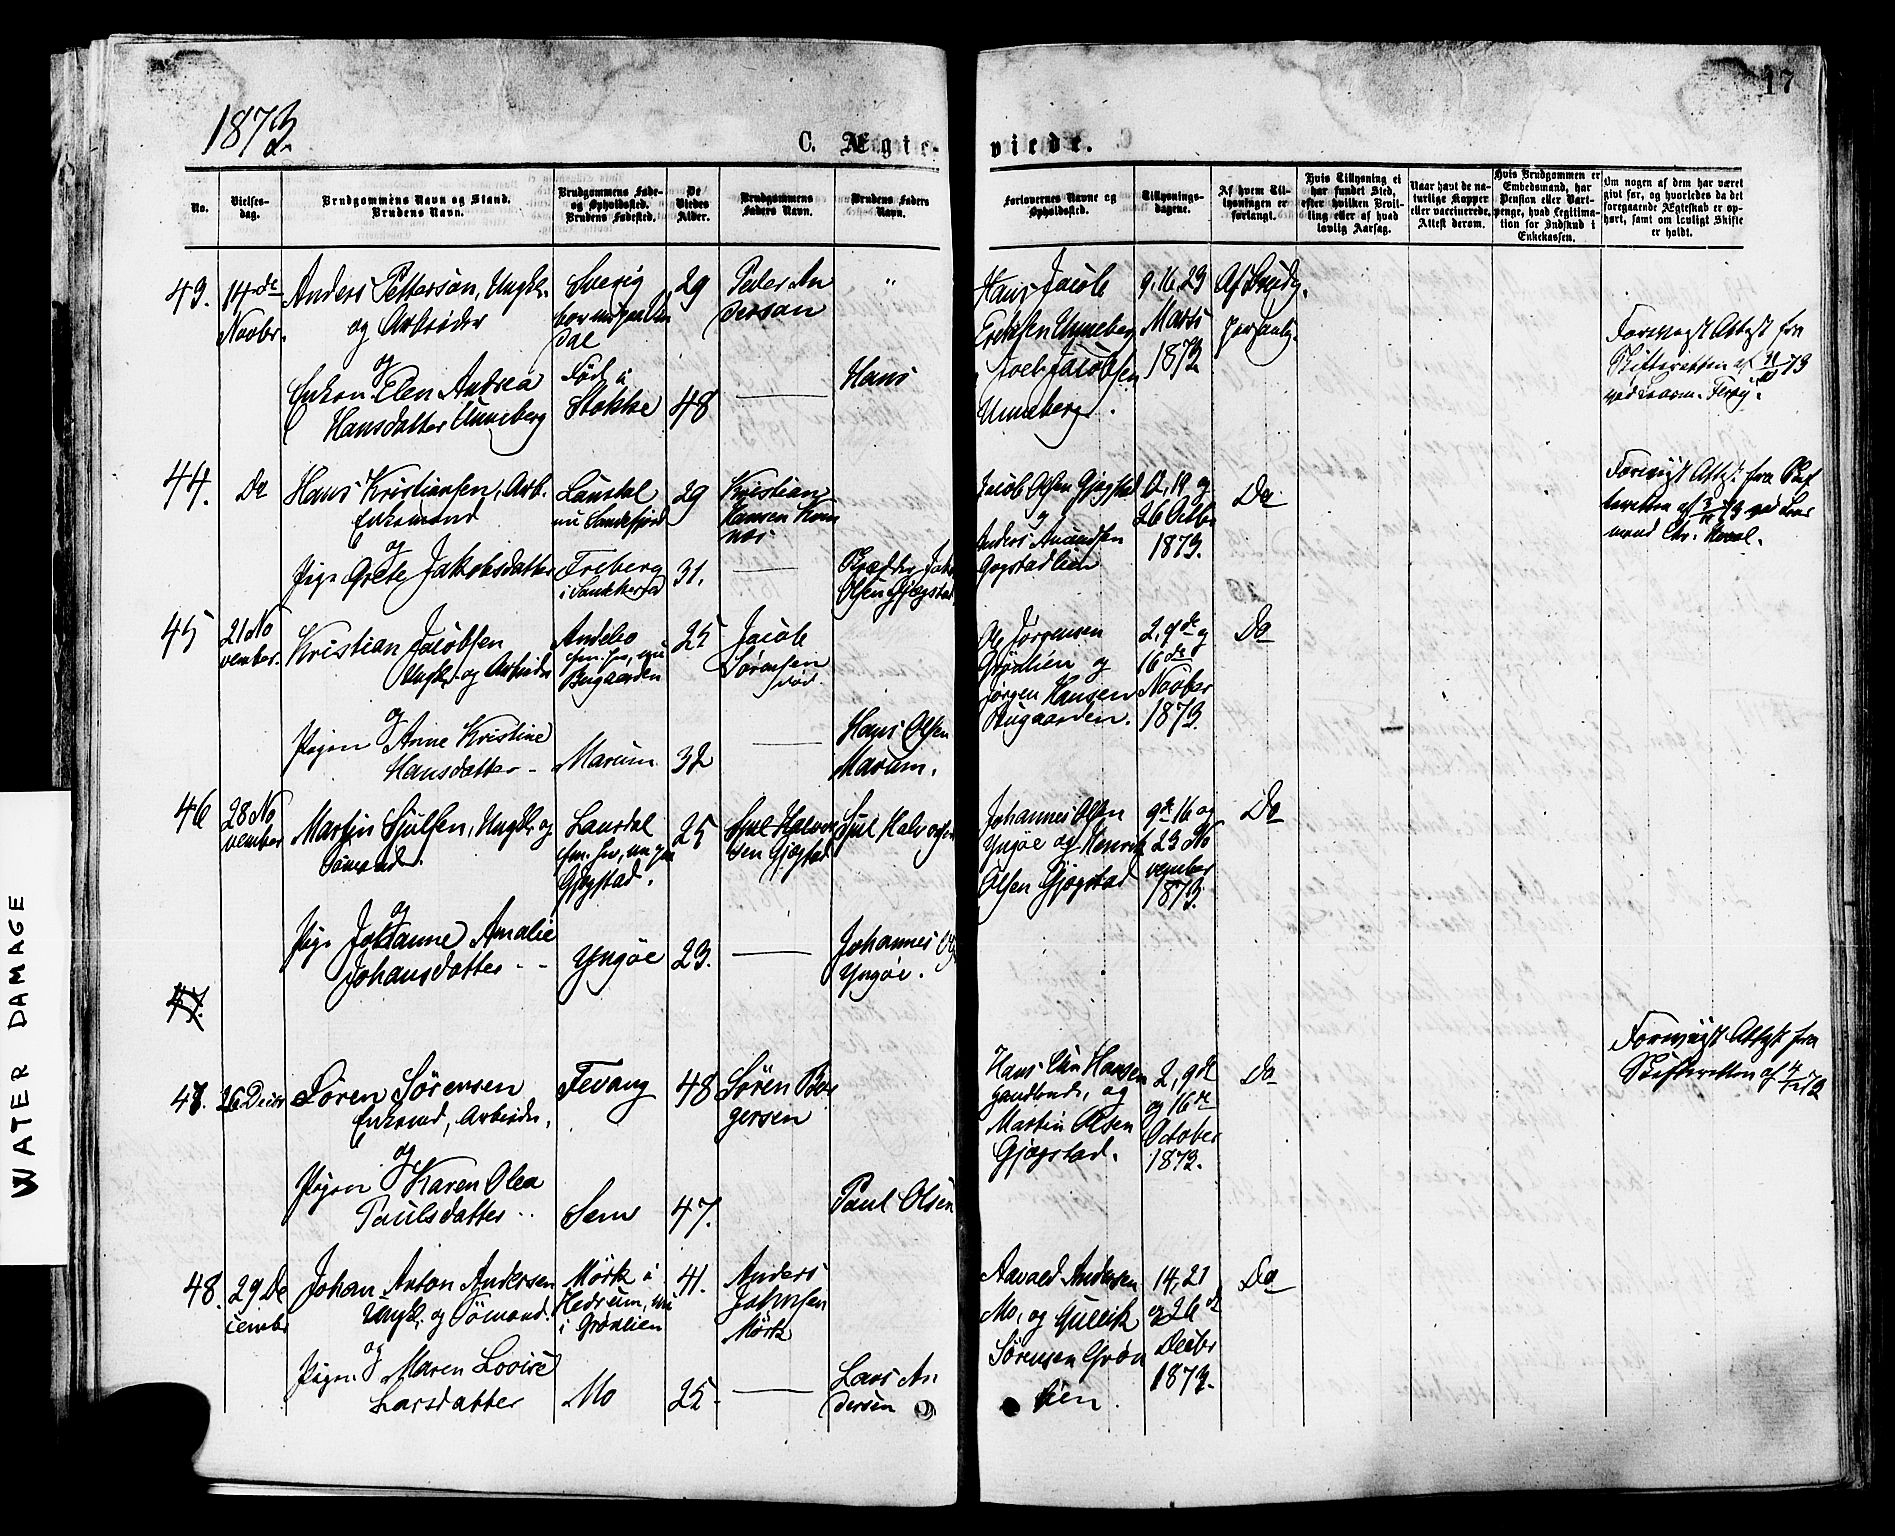 1873
17
C. Ægte-
viede.
No.
Vielses-
dag.
Brudgommens Navn og Stand.
Brudens Navn.
Brudgommens Føde-
og Opholdssted.
Brudens Fødested.
De
Viedes
Alder.
Brudgommens
Faders Navn.
Brudens Faders
Navn.
Forlovernes Navne og
Opholdssted.
Tillysnings-
dagene.
Af hvem Til-
lysningen er
forlangt.
Hvis Tillysning ei
har fundet Sted,
efter hvilken Bevil-
ling eller af hvad
lovlig Aarsag.
Naar havt de na-
turlige Kopper
eller vaccinerede,
Attest derom.
Hvis Brudgommen er
Embedsmand, har
Pension eller Vart-
penge, hvad Legitima-
tion for Indskud i
Enkekassen.
Om nogen af dem har været
gift før, og hvorledes da det
foregaaende Ægteskab er op-
hørt, samt om lovligt Skifte
er holdt.
43.
14de
Novbr.
Anders Petterson, Ungk.
og Arbeider
og
Enken Elen Andrea
Hansdatter Unneberg
Sverig
dal
Født i
Stokke
29
48
Peder An
derson
"
Hans
Hans Jacob
Eriksen Unneberg
Joeb Jacobsen
Unneberg.
9, 16, 23
Marts
1873
Af Brudg.
personlig.
Forevist Attest fra
Skifteretten af
44.
Do
Hans Kristiansen, Arb.
Enkemand
og
Pige Grete Jakobsdatter
Laurdal
nu Sandefjord
Freberg
i Sandeherred
29
31.
Kristian
Hansen
Olsen Gjøgstad
Jacob Olsen Gjøgstad
og
Anders Amundsen
Gogstadlien
12, 19 og
26 Octbr
1873.
Do
Forevist Attest fra Skif
teretten af
45
21 No
vember.
Kristian Jacobsen
Ungk. og Arbeider
og
Pigen Anne Kristine
Hansdatter
Andebo
nu
Bugaarden
Marum
25
32
Jacob
Sørensen
død.
Hans Olsen
Marum.
Ole Jørgensen
Grønlien og
Jørgen Hansen
Bugaarden.
2, 9de og
16de
Novber
1873.
Do
46
28 No
vember
Martin Sjulsen, Ungk. og
Sømand.
og
Pige Johanne Amalie
Johansdatter
Laurdal
Gjøgstad.
Yngöe
25
23.
Sjul Halvor
sen Gjøgstad
Sjul Halvorsen
Johannes
Yngöe.
Johannes Olsen
Yngöe og Henrik
Olsen Gjøgstad
9de 16 og
23 No
vember
1873.
Do
47.
47.
26 Decbr
Søren Sørensen
Enkemd, Arbeider.
og
Pigen Karen Olea
Paulsdatter
Fevang
Sem
48
47.
Søren Bør
gersen
Paul Olsen
Hans Chr. Hansen
og
Martin Olsen
Gjøgstad.
2, 9de
og 16de
October
1873.
Do
Forevist Attest fra
Skifteretten af
48.
29 De
cembr
Johan Anton Andersen
Ungk. og Sømand.
og
Pigen Maren Lovise
Larsdatter
Mörk i
Hedrum, nu
i Grönlien
Mo
41.
25.
Anders
Johnsen
Mörk
Lars An
dersen
Aavald Andersen
Mo, og Gullik
Sörensen Grön
lien.
14, 21
og 26de
Decbr
1873.
Do
WATER DAMAGE